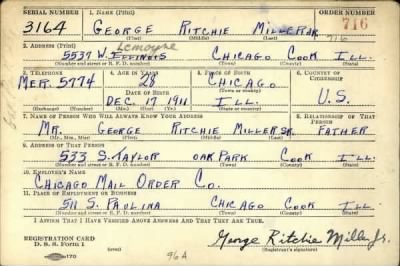 SERIAL NUMBER 1. NAME (Print) ORDER NUMBER
3164 GEORGE RITCHIE MILLER JR. 716
(First) (Middle) (Last) 716
2. ADDRESS (Print) Lemoyne
5537 W. ILLINOIS CHICAGO COOK ILL.
(Number and street or R. F. D. number) (Town) (County) (State)
3. TELEPHONE 4. AGE IN YEARS 5. PLACE OF BIRTH 6. COUNTRY OF CITIZENSHIP
MER. 5774 28 CHICAGO
DATE OF BIRTH (Town or county)
DEC. 17 1911 ILL. U.S.
(Exchange) (Number) (Mo.) (Day) (Yr.) (State or country)
7. NAME OF PERSON WHO WILL ALWAYS KNOW YOUR ADDRESS 8. RELATIONSHIP OF THAT PERSON
MR. GEORGE RITCHIE MILLER SR. FATHER
(Mr., Mrs., Miss) (First) (Middle) (Last)
9. ADDRESS OF THAT PERSON
533 S. TAYLOR OAK PARK COOK ILL.
(Number and street or R. F. D. number) (Town) (County) (State)
10. EMPLOYER'S NAME
CHICAGO MAIL ORDER CO.
11. PLACE OF EMPLOYMENT OR BUSINESS
511 S. PAULINA CHICAGO COOK ILL.
(Number and street or R. F. D. number) (Town) (County) (State)
I AFFIRM THAT I HAVE VERIFIED ABOVE ANSWERS AND THAT THEY ARE TRUE.
REGISTRATION CARD George Ritchie Miller Jr.
D. S. S. Form 1 (Registrant's signature)